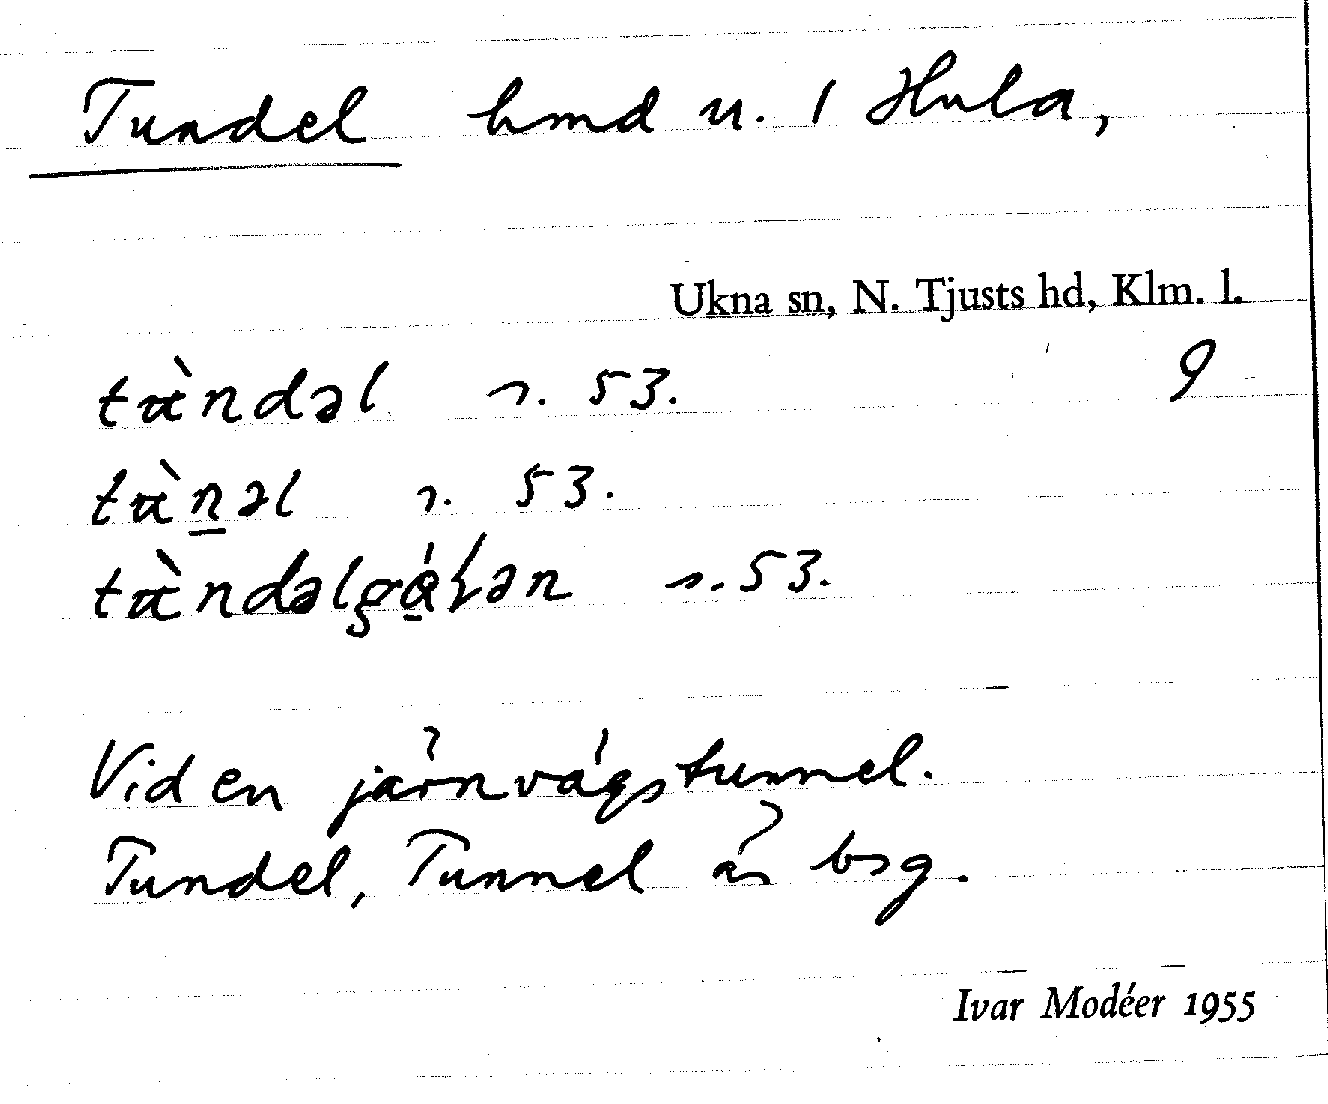 Tundel hmd u. 1 Hula,
Ukna sn, N. Tjusts hd, Klm. l.
9
tɯ̀ndəl s. 53.
tɯ̀n̲əl s. 53.
s. 53.
Vid en järnvägstunnel.
Tundel, Tunnel är bsg.
Ivar Modéer 1955